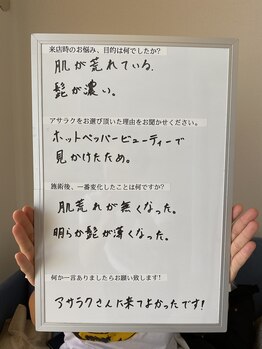 来店時のお悩み、目的は何でしたか?
肌が荒れている、
髭が濃い。
アサラクをお選び頂いた理由をお聞かせください。
ホットペッパービューティーで
見かけたため。
施術後、一番変化したことは何ですか?
肌荒れが無くなった。
明らか髭が薄くなった。
何か一言ありましたらお願い致します!
アサラクさんに来てよかったです!